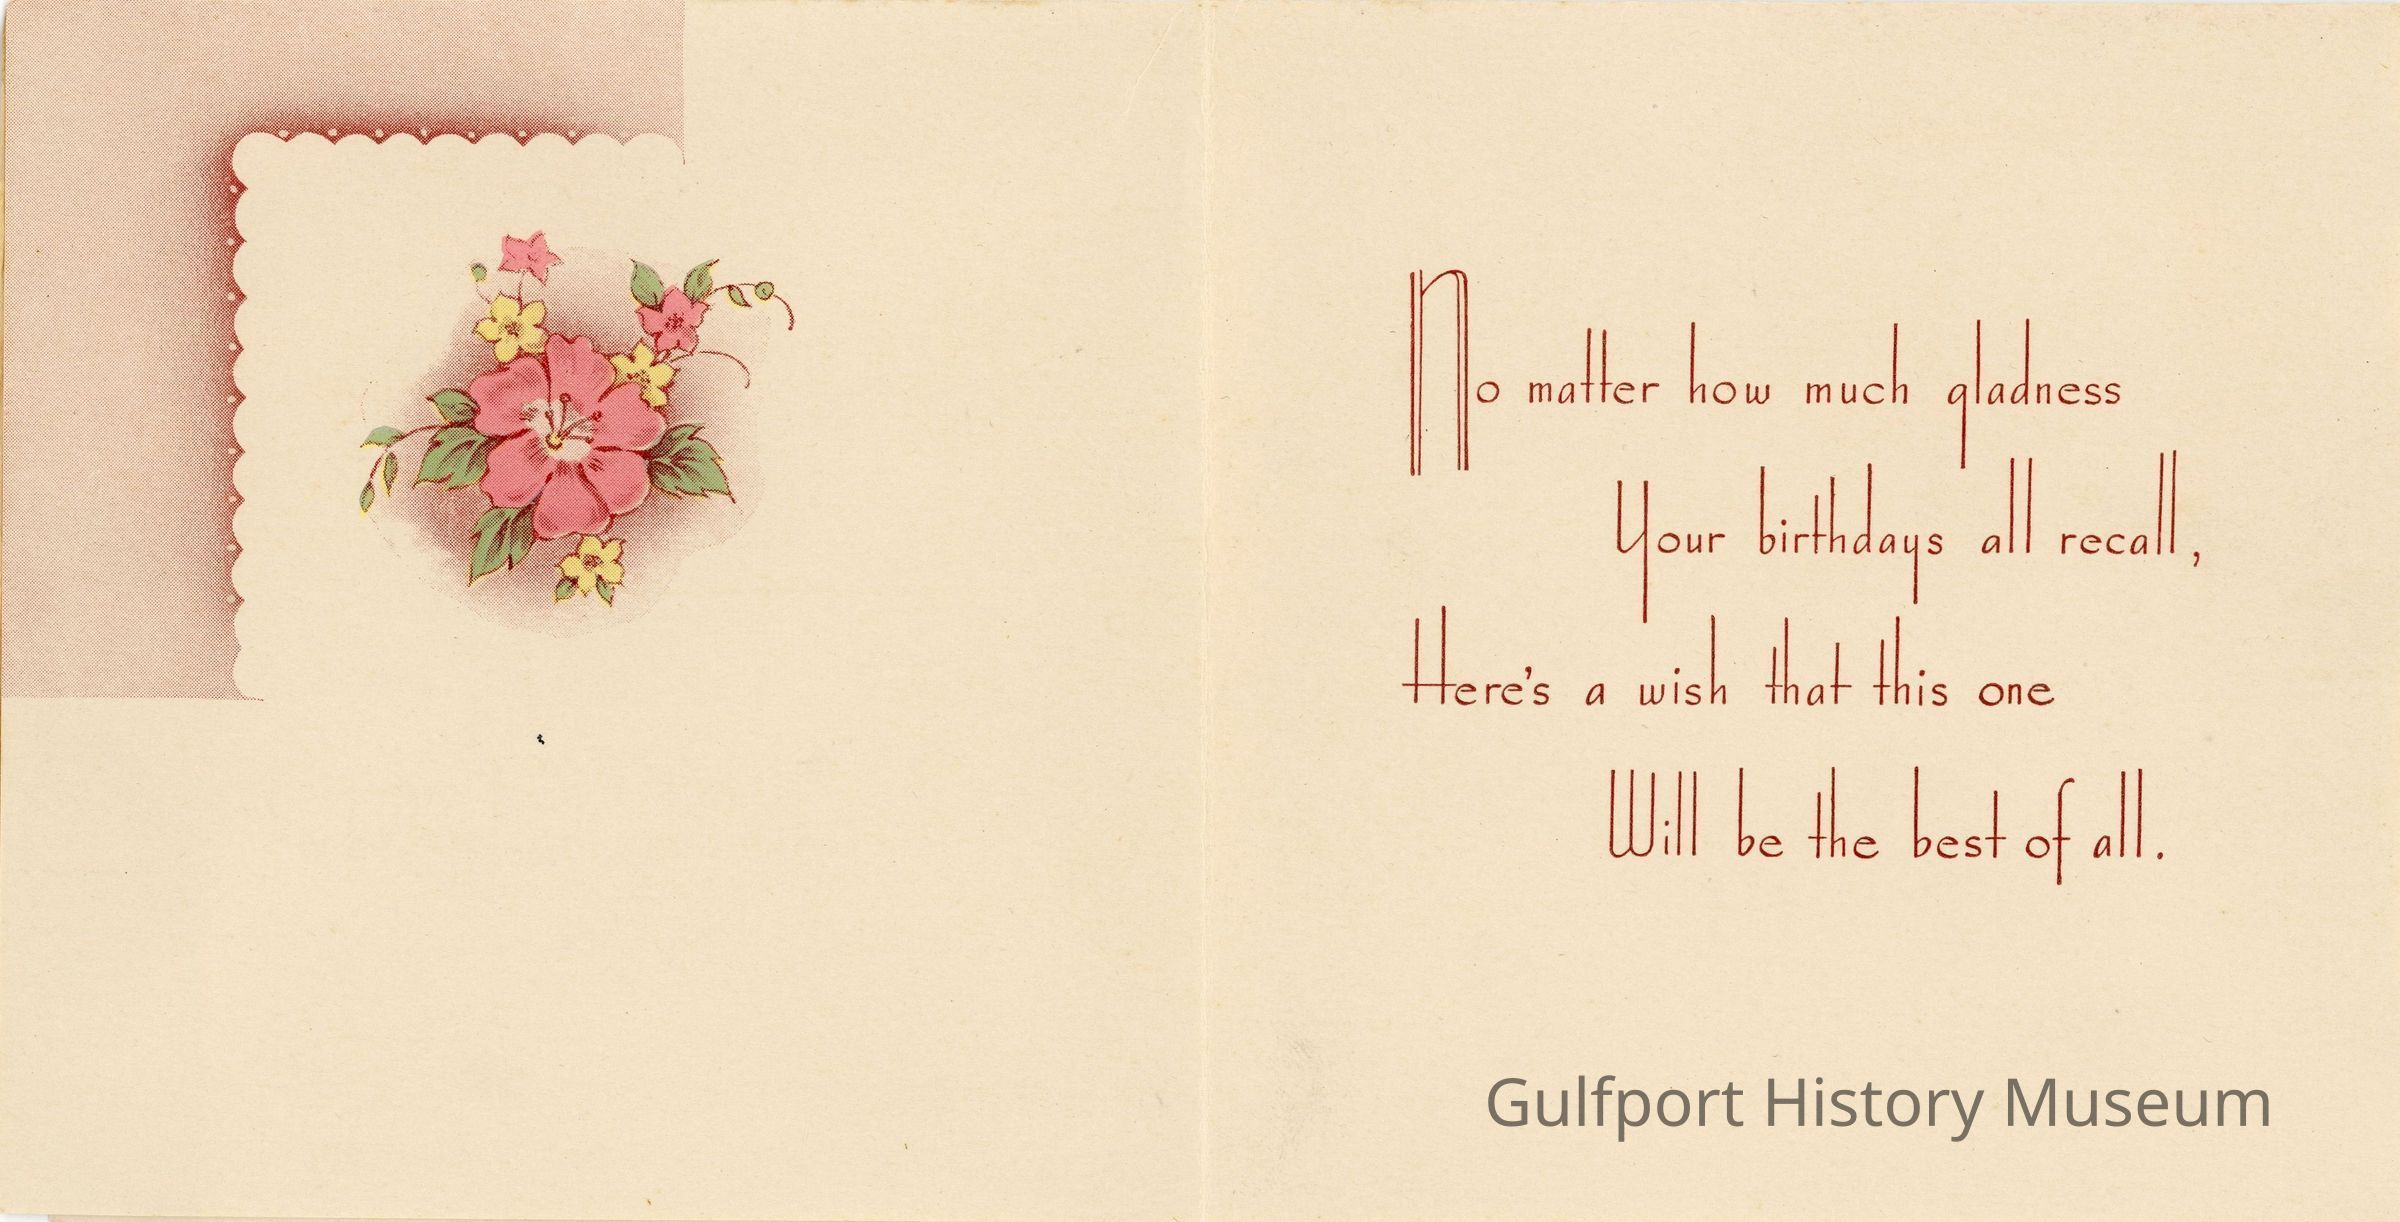 No matter how much gladness
Your birthdays all recall,
Here's a wish that this one
Will be the best of all.
Gulfport History Museum